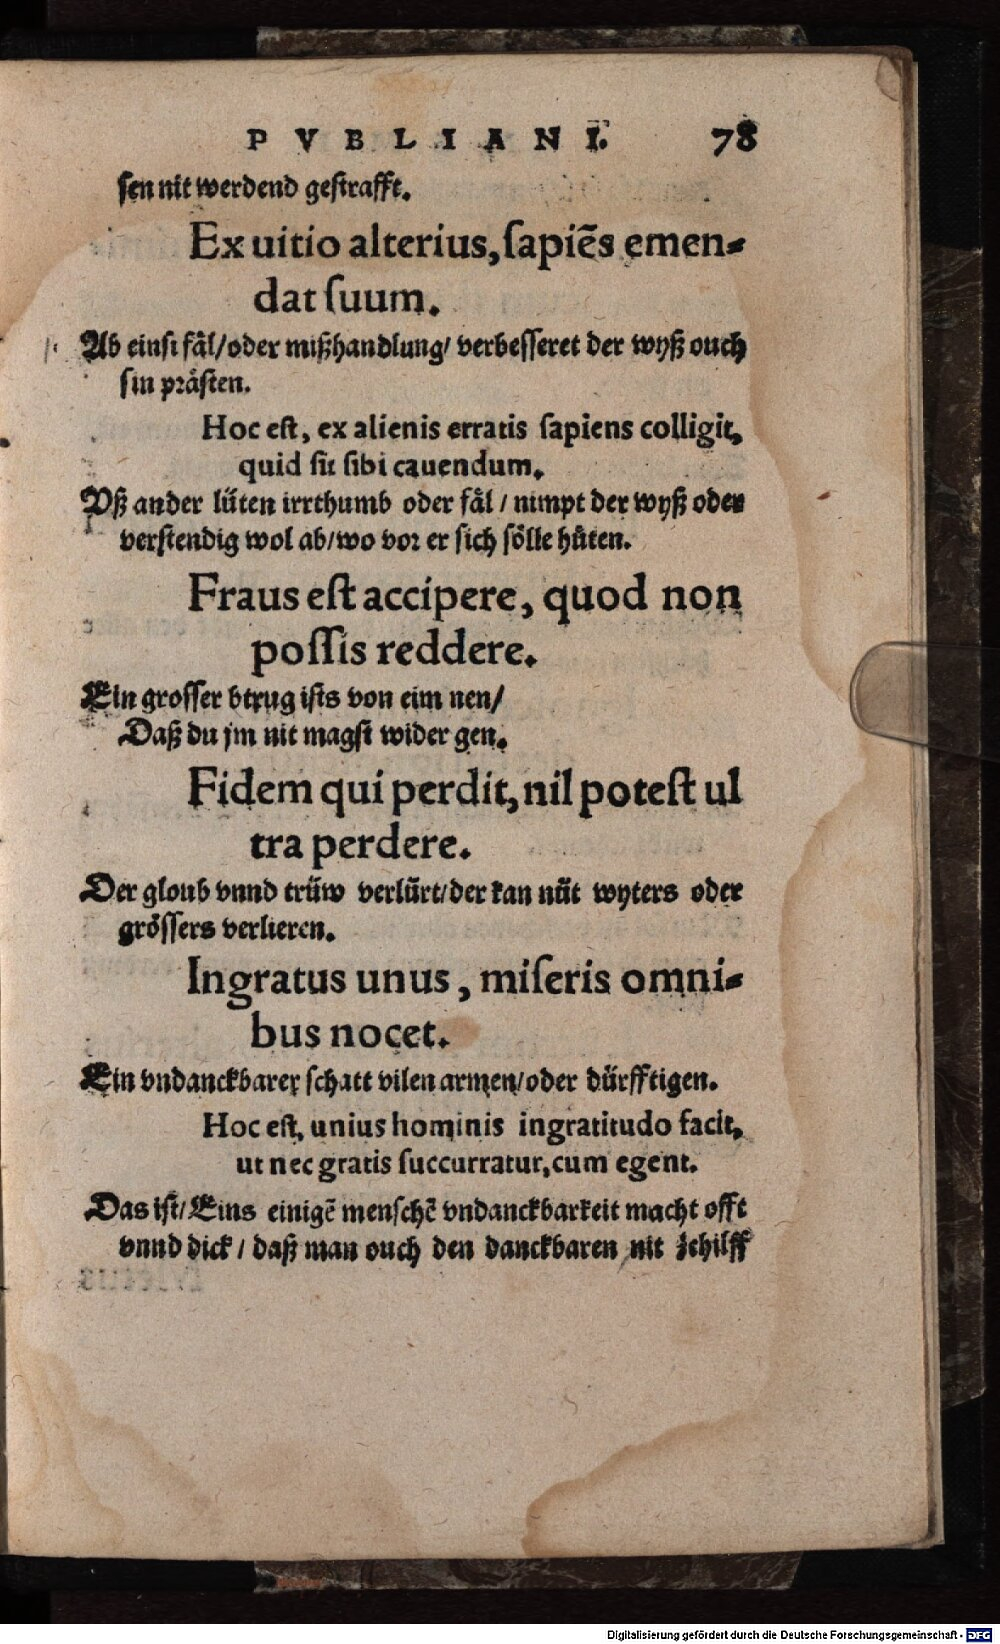 PVBLIANI. 78
sen nit werdend gestrafft.
Ex uitio alterius, ſapiẽs emen-
dat ſuum.
Ab einsi fäl/oder mißhandlung/ verbesseret der wyß ouch
sin prästen.
Hoc est, ex alienis erratis sapiens colligit,
quid sit sibi cauendum.
Vß ander lüten irrthumb oder fäl / nimpt der wyß oder
verstendig wol ab/wo vor er sich sölle hüten.
Fraus eſt accipere, quod non
poſſis reddere.
Ein grosser btrug ists von eim nen/
Daß du jm nit magst wider gen.
Fidem qui perdit, nil poteſt ul
tra perdere.
Der gloub vnnd trüw verlürt/der kan nüt wyters oder
grössers verlieren.
Ingratus unus, miſeris omni-
bus nocet.
Ein vndanckbarer schatt vilen armen/oder dürfftigen.
Hoc est, unius hominis ingratitudo facit,
ut nec gratis succurratur, cum egent.
Das ist/ Eins einigẽ menschẽ vndanckbarkeit macht offt
vnnd dick / daß man ouch den danckbaren nit zehilff
Digitalisierung gefördert durch die Deutsche Forschungsgemeinschaft - DFG